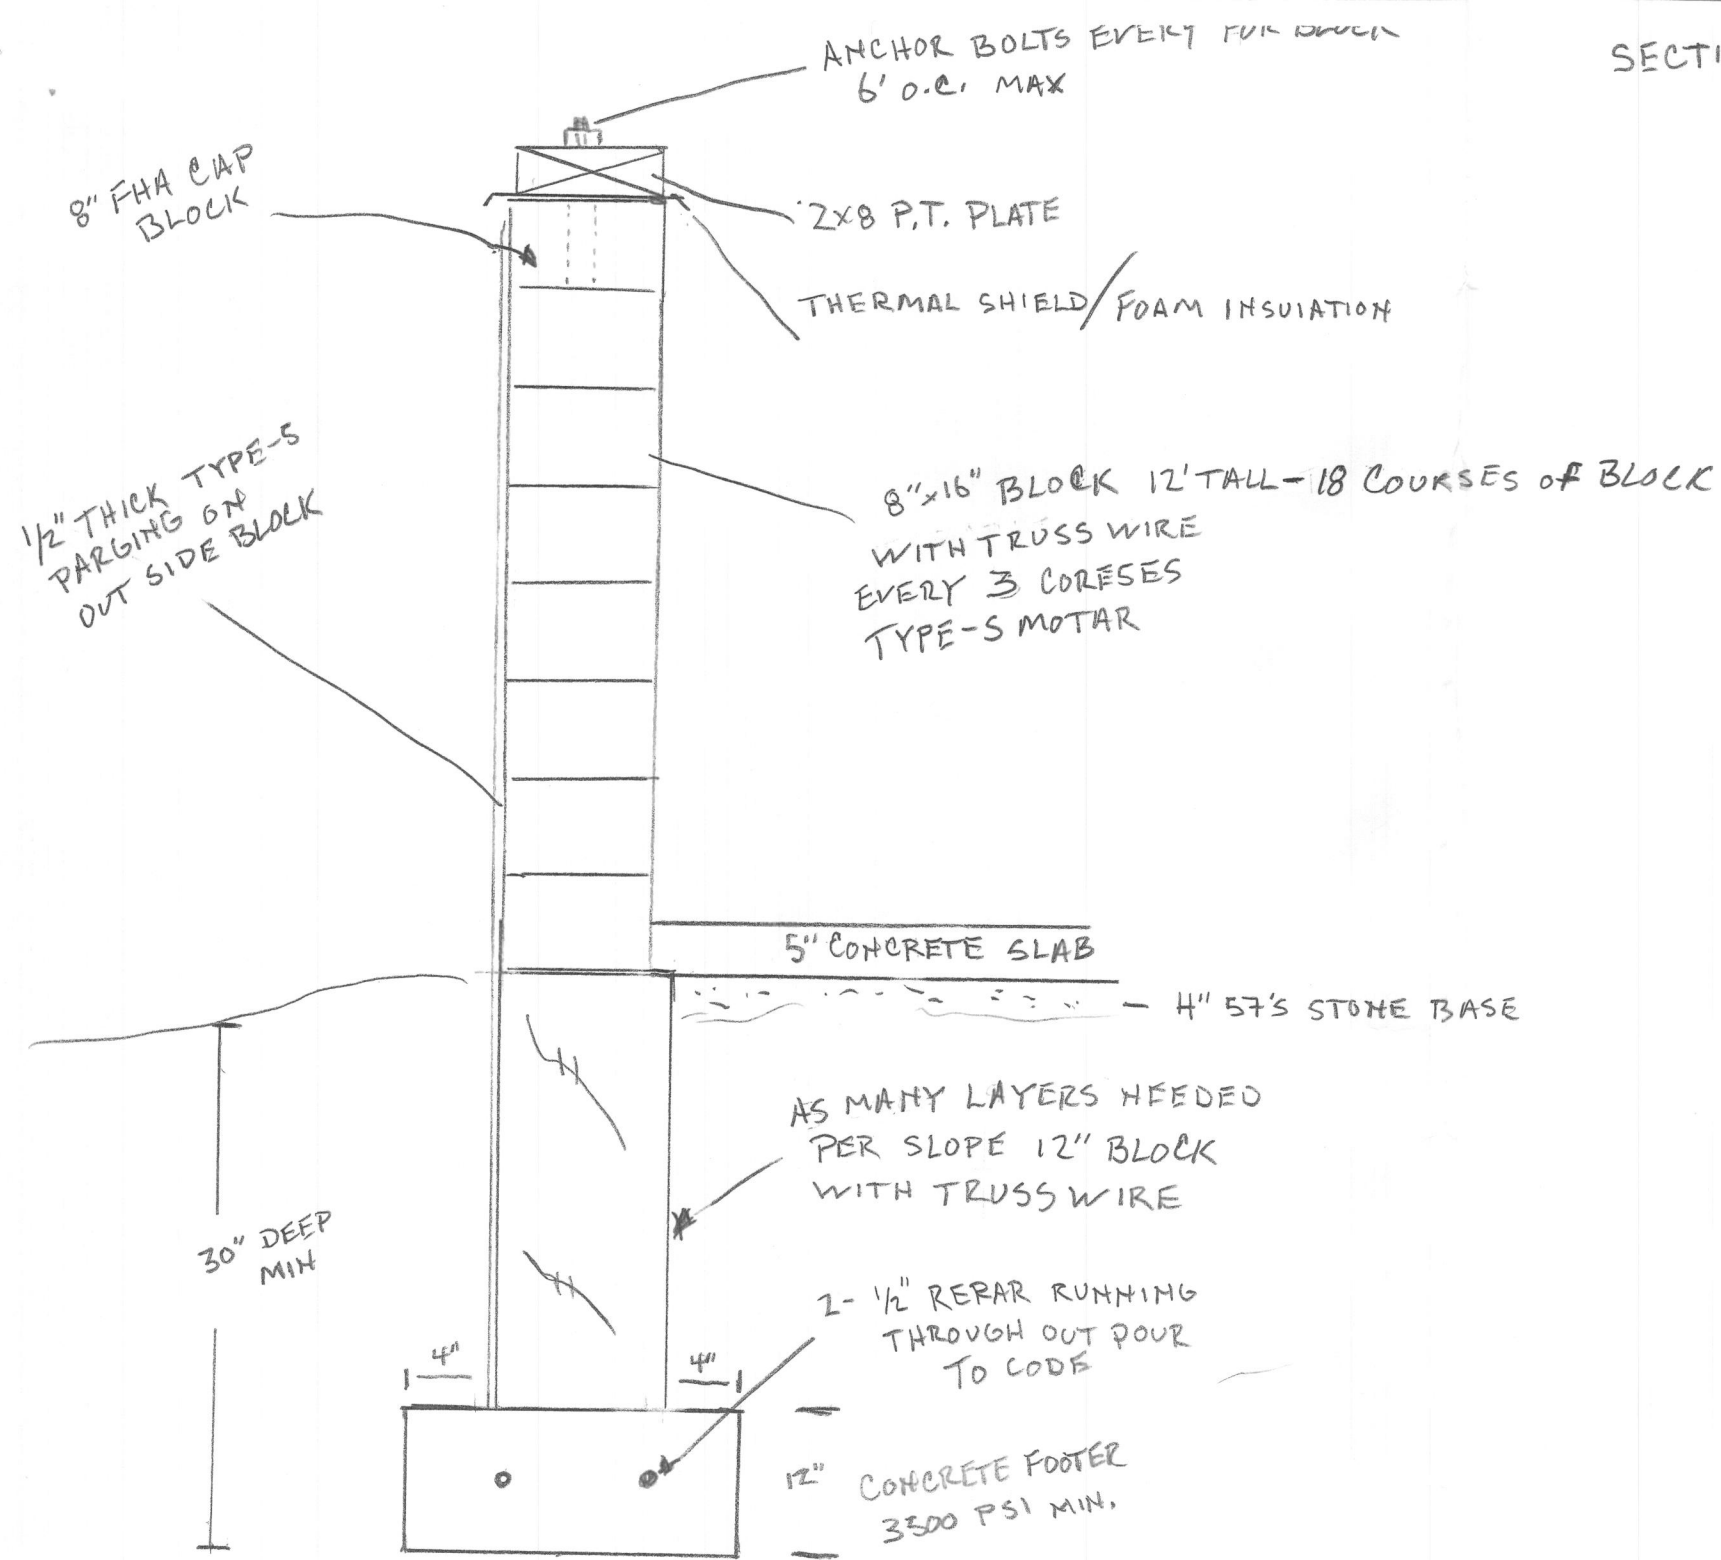 ANCHOR BOLTS EVERY FOR BLOCK
6' O.C. MAX
SECTI
8" FHA CAP
BLOCK
2x8 P.T. PLATE
THERMAL SHIELD/FOAM INSULATION
1/2" THICK TYPE-S
PARGING ON
OUT SIDE BLOCK
8"x16" BLOCK 12' TALL - 18 COURSES of BLOCK
WITH TRUSS WIRE
EVERY 3 CORESES
TYPE-S MOTAR
5" CONCRETE SLAB
- 4" 57'S STONE BASE
AS MANY LAYERS NEEDED
PER SLOPE 12" BLOCK
WITH TRUSS WIRE
30" DEEP
MIN
2- 1/2" REBAR RUNNING
THROUGH OUT POUR
TO CODE
4"
4"
12"
CONCRETE FOOTER
3500 PSI MIN.